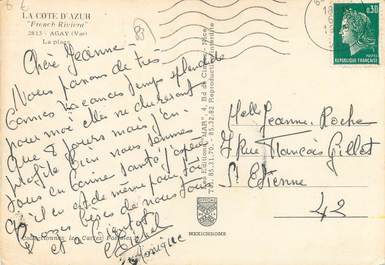 LA COTE D'AZUR
"French Riviera"
2813 - AGAY (Var)
La plage
Chère Jeanne -
Nous passons de très
bonnes vacances temps splendide
pour moi elle ne dureront
que 8 jours mais j'en
profite bien nous sommes
tous en bonne santé j'espère
qu'il en est de même pour toi
Grosses bises de nous tous
et à bientôt
Monique
Melle Jeanne Roche
7 Rue François Gillet
St Etienne
42
0,30
REPUBLIQUE FRANÇAISE
Editions "MAR", 4, Bd de Cimiez - Nice
Tél. 85.31.70 - 85.12.82 Reproduction interdite
Collectionnez les Cartes Postales
MEXICHROME